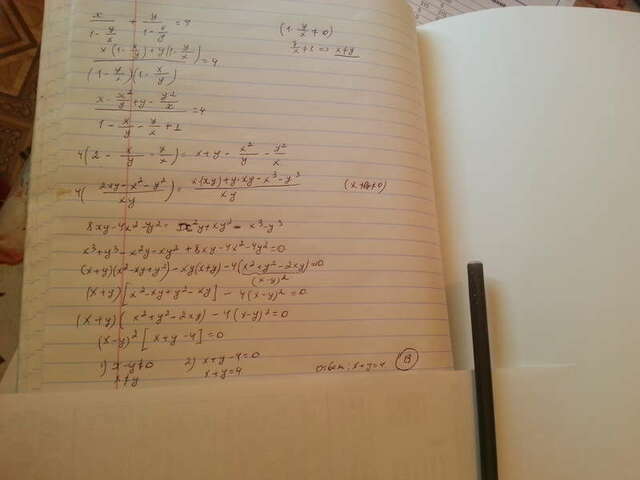 x/(1 - y/x) + y/(1 - x/y) = 4
(1 - y/x ≠ 0)
y/x ≠ 1 => x≠y
(x(1 - x/y) + y(1 - y/x))/((1 - y/x)(1 - x/y)) = 4
(x - x²/y + y - y²/x)/(1 - x/y - y/x + 1) = 4
4(2 - x/y - y/x) = x + y - x²/y - y²/x
4((2xy - x² - y²)/xy) = (x(xy) + y·xy - x³ - y³)/xy
8xy - 4x² - 4y² = x²y + xy² - x³ - y³
x³ + y³ - x²y - xy² + 8xy - 4x² - 4y² = 0
(x+y)(x² - xy + y²) - xy(x+y) - 4(x² + y² - 2xy) = 0
(x-y)²
(x+y)[x² - xy + y² - xy] - 4(x-y)² = 0
(x+y)(x² + y² - 2xy) - 4(x-y)² = 0
(x-y)²[x + y - 4] = 0
1) x-y≠0 2) x+y-4=0
x≠y x+y=4 Ответ: x+y=4 В